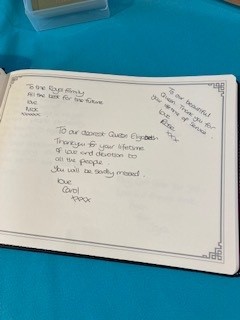 To the Royal Family
All the best for the future.
love
Nick
xxxxxx
To our beautiful
Queen Thank you for
your lifetime of Service.
love
Rose
xxx
To our dearest Queen Elizabeth
Thankyou for your lifetime
of love and devotion to
all the people.
You will be sadly missed.
love
Carol
xxxx